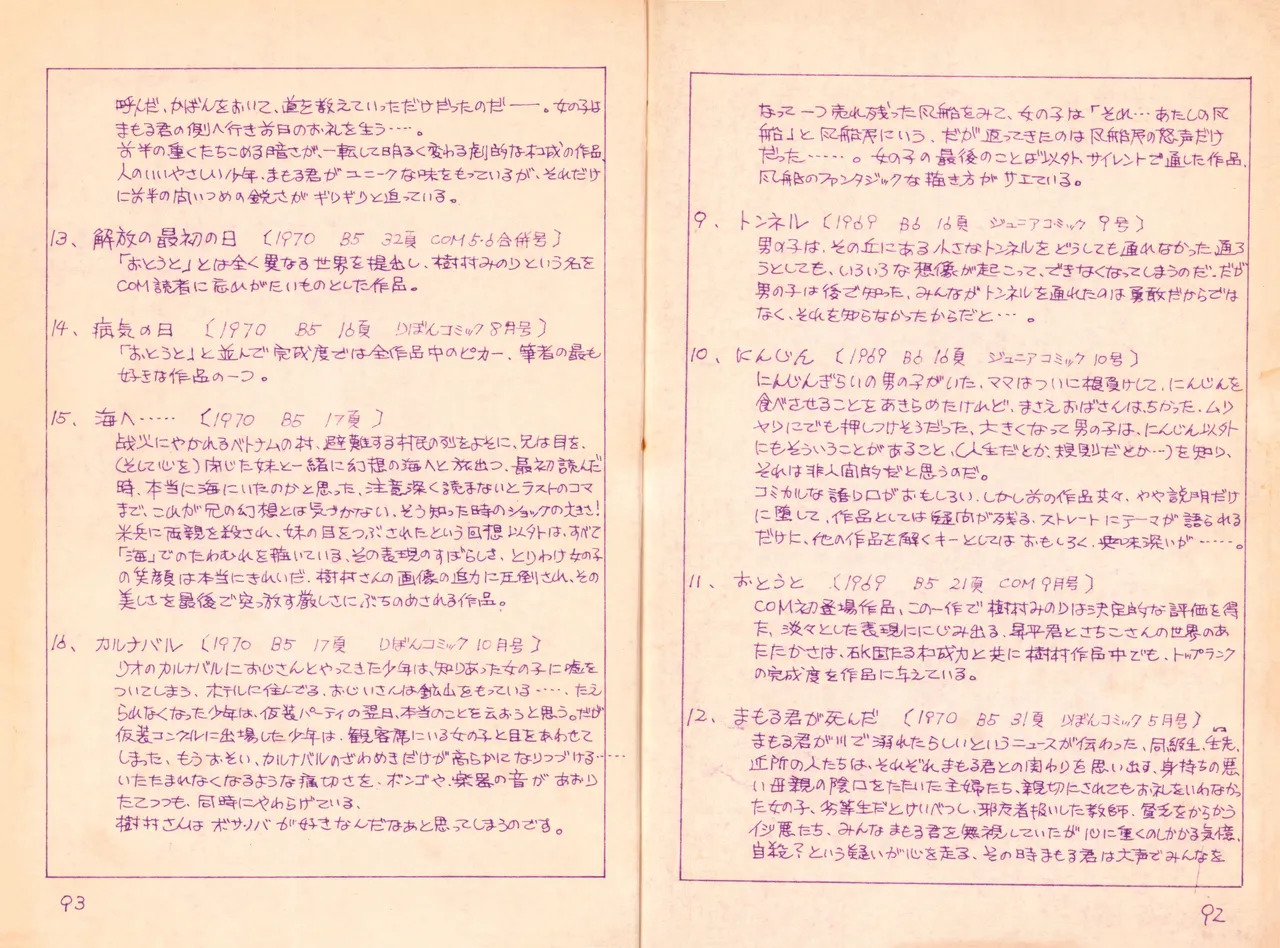 なって一つ売れ残った風船をみて、女の子は「それ…あたしの風
船」と風船屋にいう。だが返ってきたのは風船屋の怒声だけ
だった……。女の子の最後のことば以外、サイレントで通した作品、
風船のファンタジックな描き方がサエている。
9、トンネル (1969 B6 16頁 ジュニアコミック 9号)
男の子は、その丘にある小さなトンネルをどうしても通れなかった、通ろ
うとしても、いろいろな想像が起こって、できなくなってしまうのだ、だが
男の子は後で知った、みんながトンネルを通れたのは勇敢だからでは
なく、それを知らなかったからだと…。
10、にんじん (1969 B6 16頁 ジュニアコミック 10号)
にんじんぎらいの男の子がいた、ママはついに根負けして、にんじんを
食べさせることをあきらめたけれど、まさえおばさんはちがった、ムリ
ヤリにでも押しつけそうだった、大きくなって男の子は、にんじん以外
にもそういうことがあること、(人生だとか、規則だとか…)を知り、
それは非人間的だと思うのだ。
コミカルな語り口がおもしろい、しかし前の作品共々、やや説明だけ
に堕して、作品としては疑問が残る、ストレートにテーマが語られる
だけに、他の作品を解くキーとしてはおもしろく、興味深いが……。
11、おとうと (1969 B5 21頁 COM 9月号)
COM初登場作品、この一作で樹村みのりは決定的な評価を得
た、淡々とした表現ににじみ出る、昇平君とさちこさんの世界のあ
たたかさは、確固たる構成力と共に樹村作品中でも、トップランク
の完成度を作品に与えている。
12、まもる君が死んだ (1970 B5 31頁 りぼんコミック 5月号)
まもる君が川で溺れたらしいというニュースが伝わった、同級生、先生、
近所の人たちは、それぞれまもる君との関わりを思い出す、身持ちの悪
い母親の陰口をたたいた主婦たち、親切にされてもお礼をいわなかっ
た女の子、劣等生だとけいべつし、邪魔者扱いした教師、貧乏をからかう
イジ悪たち、みんなまもる君を無視していたが心に重くのしかかる気憶、
自殺?という疑いが心を走る、その時まもる君は大声でみんなを
92
呼んだ、かばんをおいて、道を教えていっただけだったのだ――。女の子は
まもる君の側へ行き前日のお礼を言う…。
前半の重くたちこめる暗さが、一転して明るく変わる劇的な構成の作品、
人のいいやさしい少年、まもる君がユニークな味をもっているが、それだけ
に前半の問いつめの鋭さがギリギリと迫っている。
13、解放の最初の日 (1970 B5 32頁 COM 5・6合併号)
「おとうと」とは全く異なる世界を提出し、樹村みのりという名を
COM読者に忘れがたいものとした作品。
14、病気の日 (1970 B5 16頁 りぼんコミック 8月号)
「おとうと」と並んで完成度では全作品中のピカ一、筆者の最も
好きな作品の一つ。
15、海へ…… (1970 B5 17頁)
戦火にやかれるベトナムの村、避難する村民の列をよそに、兄は目を、
(そして心を)閉じた妹と一緒に幻想の海へと旅出つ、最初読んだ
時、本当に海にいたのかと思った、注意深く読まないとラストのコマ
まで、これが兄の幻想とは気づかない、そう知った時のショックの大きさ!
米兵に両親を殺され、妹の目をつぶされたという回想以外は、すべて
「海」でのたわむれを描いている、その表現のすばらしさ、とりわけ女の子
の笑顔は本当にきれいだ、樹村さんの画像の迫力に圧倒され、その
美しさを最後で突っ放す厳しさにぶちのめされる作品。
16、カルナバル (1970 B5 17頁 りぼんコミック 10月号)
リオのカルナバルにおじさんとやってきた少年は、知りあった女の子に嘘を
ついてしまう、ホテルに住んでる、おじいさんは鉱山をもっている……、たえ
られなくなった少年は、仮装パーティの翌日、本当のことを云おうと思う。だが
仮装コンクルに出場した少年は、観客席にいる女の子と目をあわせて
しまった、もうおそい、カルナバルのざわめきだけが高らかになりつづける……
いたたまれなくなるような痛切さを、ボンゴや、楽器の音があおり
たてつつも、同時にやわらげている、
樹村さんはボサノバが好きなんだなあと思ってしまうのです。
93